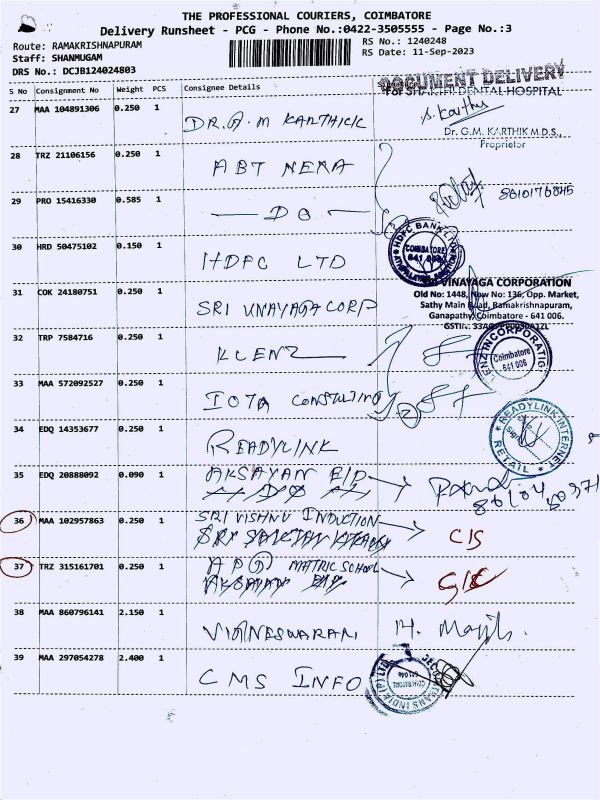 THE PROFESSIONAL COURIERS, COIMBATORE
Delivery Runsheet - PCG - Phone No.:0422-3505555 - Page No.:3
Route: RAMAKRISHNAPURAM RS No.: 1240248
Staff: SHANMUGAM RS Date: 11-Sep-2023
DRS No.: DCJB124024803
DOCUMENT DELIVERY
S No Consignment No Weight PCS Consignee Details
For SHAKTHI DENTAL HOSPITAL
27 MAA 104891306 0.250 1 DR.G.M KARTHICK
S. Karthik
Dr. G.M. KARTHIK M.D.S.,
Proprietor
28 TRZ 21106156 0.250 1 ABT NERA
29 PRO 15416330 0.585 1 — DO —
30 HRD 50475102 0.150 1 HDFC LTD
HDFC BANK
COIMBATORE
VINAYAGA CORPORATION
Old No: 1448, New No: 136, Opp. Market,
Sathy Main Road, Ramakrishnapuram,
Ganapathy, Coimbatore - 641 006.
31 COK 24180751 0.250 1 SRI VINAYAGA CORP
32 TRP 7584716 0.250 1 KLENZ
Coimbatore
641 006
33 MAA 572092527 0.250 1 IOTA CONSULTING
2
34 EDQ 14353677 0.250 1 READYLINK
READYLINK INTERNET
RETAIL
35 EDQ 20888092 0.090 1 AKSAYAN
36 MAA 102957863 0.250 1 SRI VISHNU INDUCTION
37 TRZ 315161701 0.250 1 MATTRIC SCHOOL
38 MAA 860796141 2.150 1 VIGNESWARAN
39 MAA 297054278 2.400 1 CMS INFO